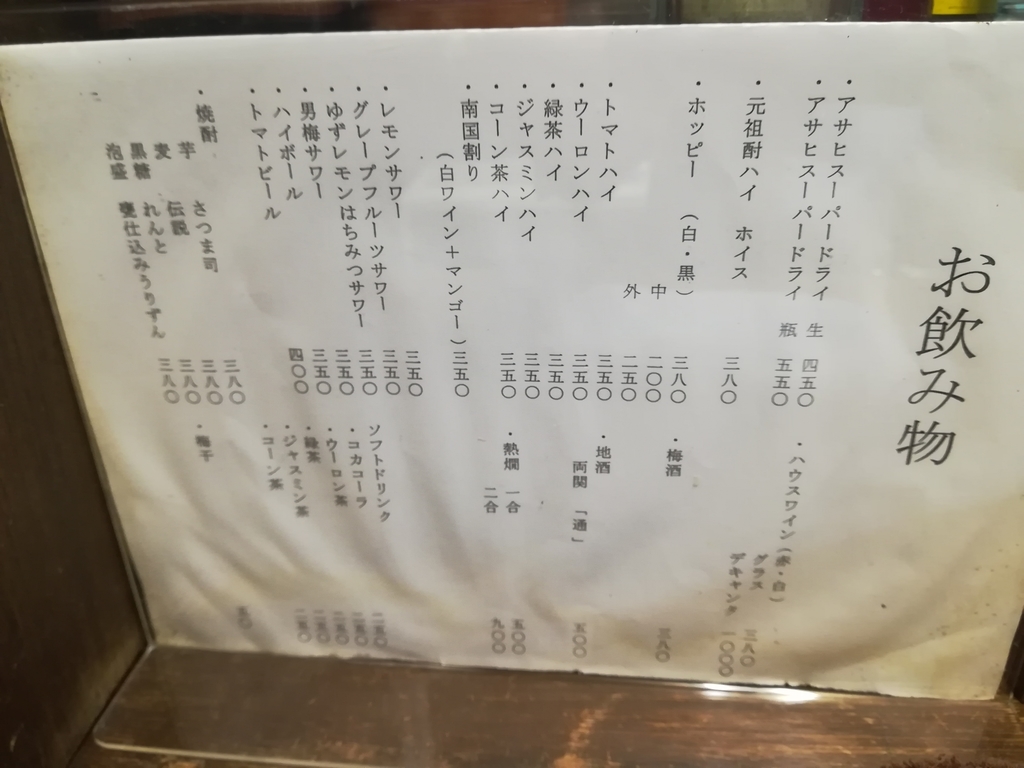 お飲み物
・アサヒスーパードライ 生 四五〇
・アサヒスーパードライ 瓶 五五〇
・元祖酎ハイ ホイス 三八〇
・ホッピー (白・黒) 三八〇
中 二〇〇
外 二五〇
・トマトハイ 三五〇
・ウーロンハイ 三五〇
・緑茶ハイ 三五〇
・ジャスミンハイ 三五〇
・コーン茶ハイ 三五〇
・南国割り
(白ワイン+マンゴー) 三五〇
・レモンサワー 三五〇
・グレープフルーツサワー 三五〇
・ゆずレモンはちみつサワー 三五〇
・男梅サワー 三五〇
・ハイボール 三五〇
・トマトビール 四〇〇
・焼酎
芋 さつま司 三八〇
麦 伝説 三八〇
黒糖 れんと 三八〇
泡盛 甕仕込みうりずん 三八〇
・ハウスワイン(赤・白)
グラス 三八〇
デキャンタ 一〇〇〇
・梅酒 三八〇
・地酒
両関 「通」 五〇〇
・熱燗 一合 五〇〇
二合 九〇〇
ソフトドリンク
・コカコーラ 二五〇
・ウーロン茶 二五〇
・緑茶 二五〇
・ジャスミン茶 二五〇
・コーン茶 二五〇
・梅干 五〇